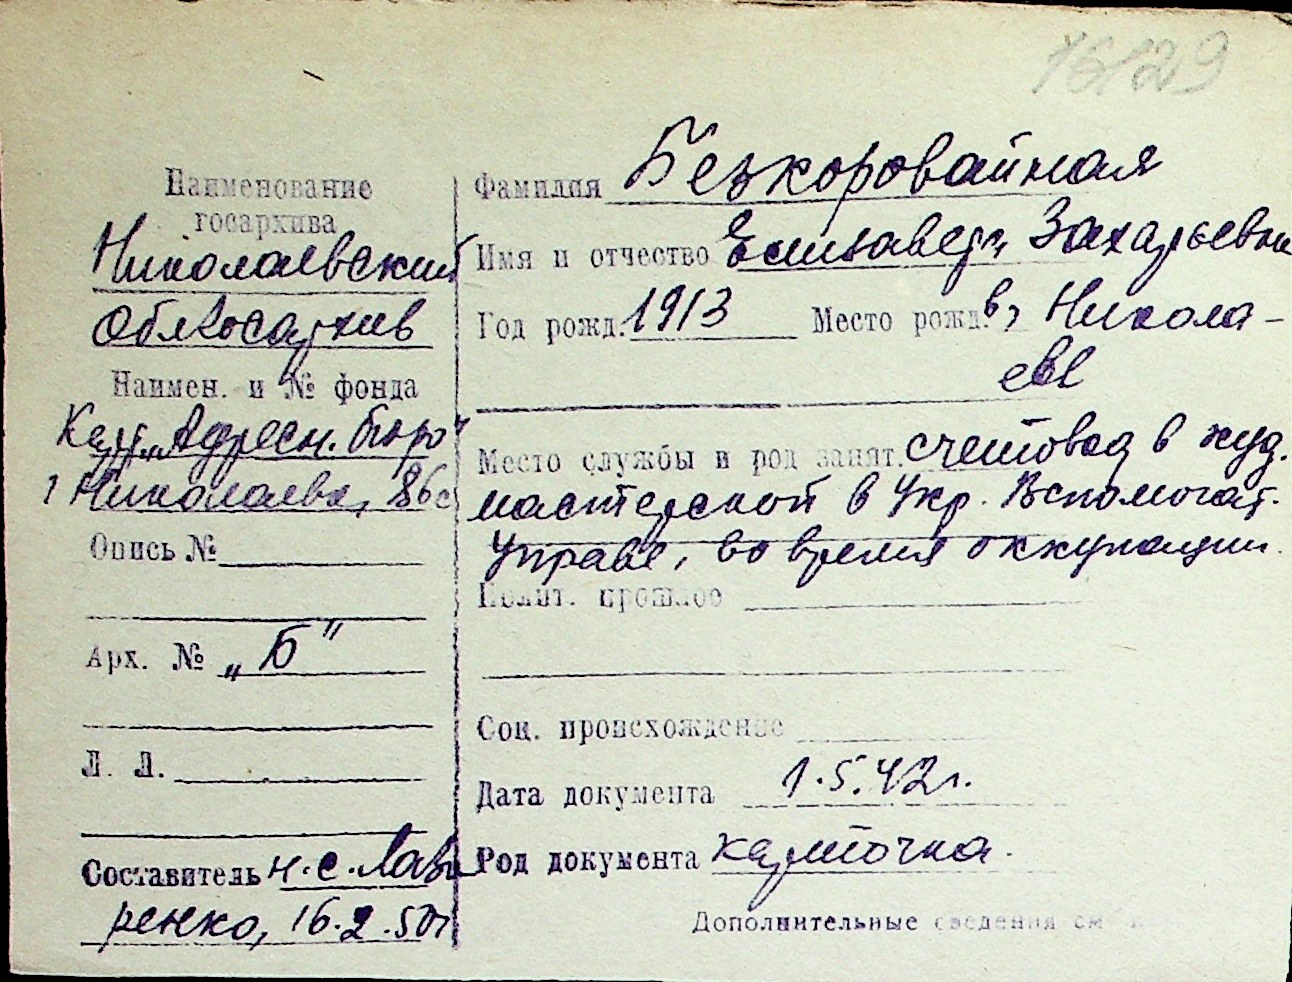 76129
Наименование
госархива
Николаевский
Облгосархив
Наимен. и № фонда
Карт. „Адресн. бюро"
г Николаева,
Опись №
Арх. № „Б"
Л. Л.
Составитель н. с. Лав
ренко, 16.2.50г
Фамилия Безкоровайная
Имя и отчество Елизавета Захарьевна
Год рожд. 1913 Место рожд. в г Никола-
еве
Место службы и род занят. счетовод в худ.
мастерской в Укр. Вспомогат.
Управе, во время оккупации.
Полит. прошлое
Соц. происхождение
Дата документа 1.5.42г.
Род документа карточка.
Дополнительные сведения см